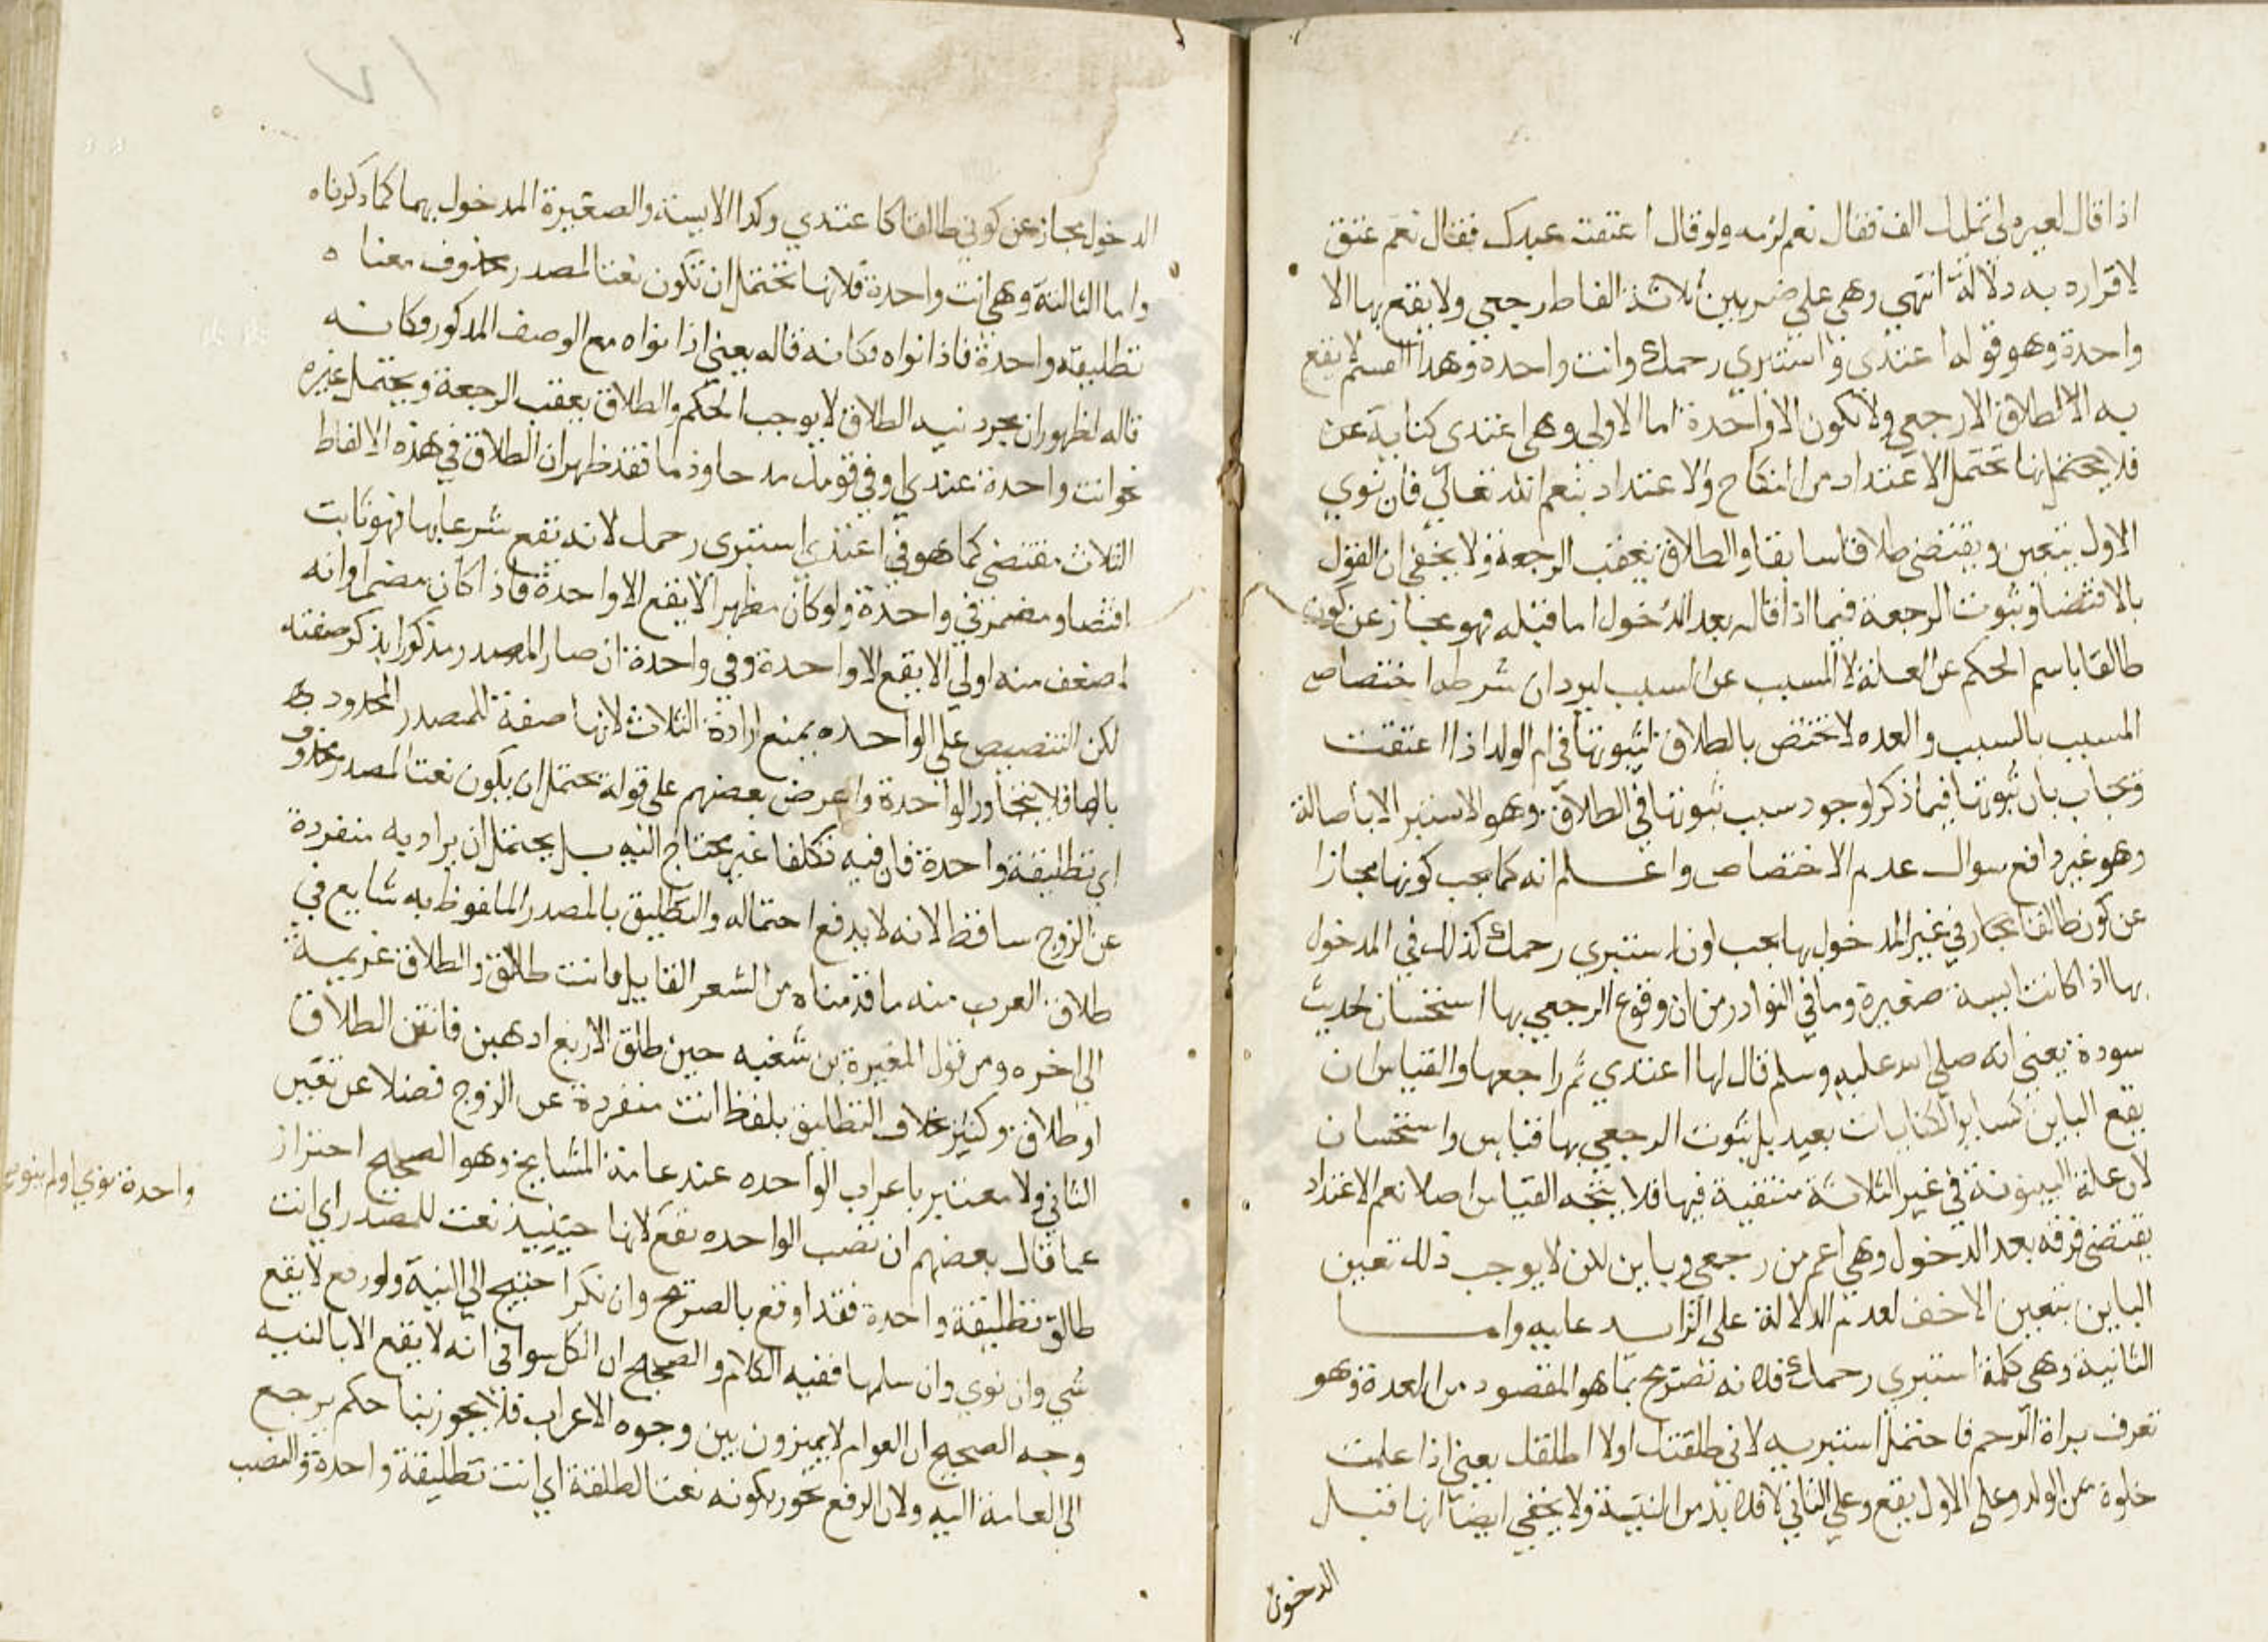 اذا قال لغيره لي عليك الف فقال نعم لزمه ولو قال اعتقت عبدك فقال نعم عتق
لاقراره به دلالة انتهي وهي علي ضربين ثلاثة الفاظ رجعي ولا يقع بها الا
واحدة وهو قوله اعتدي واستبري رحمك وانت واحدة وهذا القسم لا يقع
به الا الطلاق الا رجعي ولا تكون الا واحدة اما الاولي وهي اعتدي كناية عن
فلا يحتمل انها تحتمل الاعتداد من النكاح والاعتداد بنعم الله تعالي فان نوي
الاول يتعين ويقتضي طلاقا سابقا والطلاق يعقب الرجعة ولا يخفي ان القول
بالاقتضا وثبوت الرجعة فيما اذا قاله بعد الدخول اما قبله فهو مجاز عن كون
طالقا باسم الحكم عن العلة لا المسبب عن السبب ليرد ان شرطه اختصاص
المسبب بالسبب والعده لا تختص بالطلاق لثبوتها في ام الولد اذا اعتقت
ويجاب بان ثبوتها فيما ذكر لوجود سبب ثبوتها في الطلاق وهو الاستبرا لا بالاصالة
وهو غير دافع سوال عدم الاختصاص واعلم انه كما يجب كونها مجازا
عن كون طالقا مجاز في غير المدخول بها يجب اون استبري رحمك كذلك في المدخول
بها اذا كانت ايسة صغيرة وما في النوادر من ان وقوع الرجعي بها استحسان لحديث
سودة يعني انه صلي الله عليه وسلم قال لها اعتدي ثم راجعها والقياس ان
يقع الباين كساير الكنايات بعيد بل ثبوت الرجعي بها قياس واستحسان
لان علة البينونة في غير الثلاثة منتفية فيها فلا يتجه القياس اصلا نعم الاعتداد
يقتضي فرقه بعد الدخول وهي اعم من رجعي وباين لكن لا يوجب ذلك تعين
الباين بتعين الاخف لعدم الدلالة علي الزايد عليه واما
الثانية وهي كلمة استبري رحمك فلانه تصريح بما هو المقصود من العدة وهو
تعرف براة الرحم فاحتمل استبريه لاني طلقتك اولا اطلقك يعني اذا علمت
خلوه عن الولد وعلي الاول يقع وعلي الثاني لا فلا بد من النية ولا يخفي ايضا انها قبل
الدخول
الدخول مجاز عن كوني طالقا كاعتدي وكذا الايسة والصغيرة المدخول بهما كما ذكرناه
واما الثالثة وهي انت واحدة فلانها تحتمل ان تكون نعتا لمصدر محذوف معناه
تطليقة واحدة فاذا نواه فكانه قاله يعني اذا نواه مع الوصف المذكور فكانه
قاله لظهور ان مجرد نية الطلاق لا يوجب الحكم والطلاق يعقب الرجعة ويحتمل غيره
نحو انت واحدة عندي او في قومك مدحا وذما فقد ظهر ان الطلاق في هذه الالفاظ
الثلاث مقتضي كما هو في اعتدي استبري رحمك لانه تقع شرعا بها فهو ثابت
اقتضا ومضمر في واحدة ولو كان مظهرا لا يقع الا واحدة فاذا كان مضمرا وانه
اضعف منه اولي الا يقع الا واحدة وفي واحدة ان صار المصدر مذكورا بذكر صفته
لكن التنصيص علي الواحده يمنع ارادة الثلاث لانها صفة للمصدر المحدود به
بالها فلا يتجاوز الواحدة واعرض بعضهم علي قوله تحتمل ان يكون نعتا لمصدر محذوف
اي تطليقة واحدة فان فيه تكلفا غير محتاج اليه بل يحتمل ان يراد به منفردة
عن الزوج ساقط لانه لا يدفع احتماله والتطليق بالمصدر الملفوظ به شايع في
طلاق العرب منه ما قدمناه من الشعر القايل فانت طالق والطلاق عزيمة
الي اخره ومن قول المغيرة بن شعبه حين طلق الاربع اذهبن فانتن الطلاق
او طلاق وكثير خلاف التطليق بلفظ انت منفردة عن الزوج فضلا عن تعين
الثاني ولا معتبر باعراب الواحده عند عامة المشايخ وهو الصحيح احتراز
عما قال بعضهم ان نصب الواحده تقع لانها حينئذ نعت للمصدر اي انت
طالق تطليقة واحدة فقد اوقع بالصريح وان نكر احتيج الي النية ولو رفع لا يقع
شي وان نوي وان سلمها ففيه الكلام والصحيح ان الكل سوا في انه لا يقع الا بالنيه
وجه الصحيح ان العوام لا يميزون بين وجوه الاعراب فلا يجوز بنا حكم يرجع
الي العامة اليه ولان الرفع يجوز بكونه نعتا لطلقة اي انت تطليقة واحدة والنصب
واحدة نوي اولم ينوي